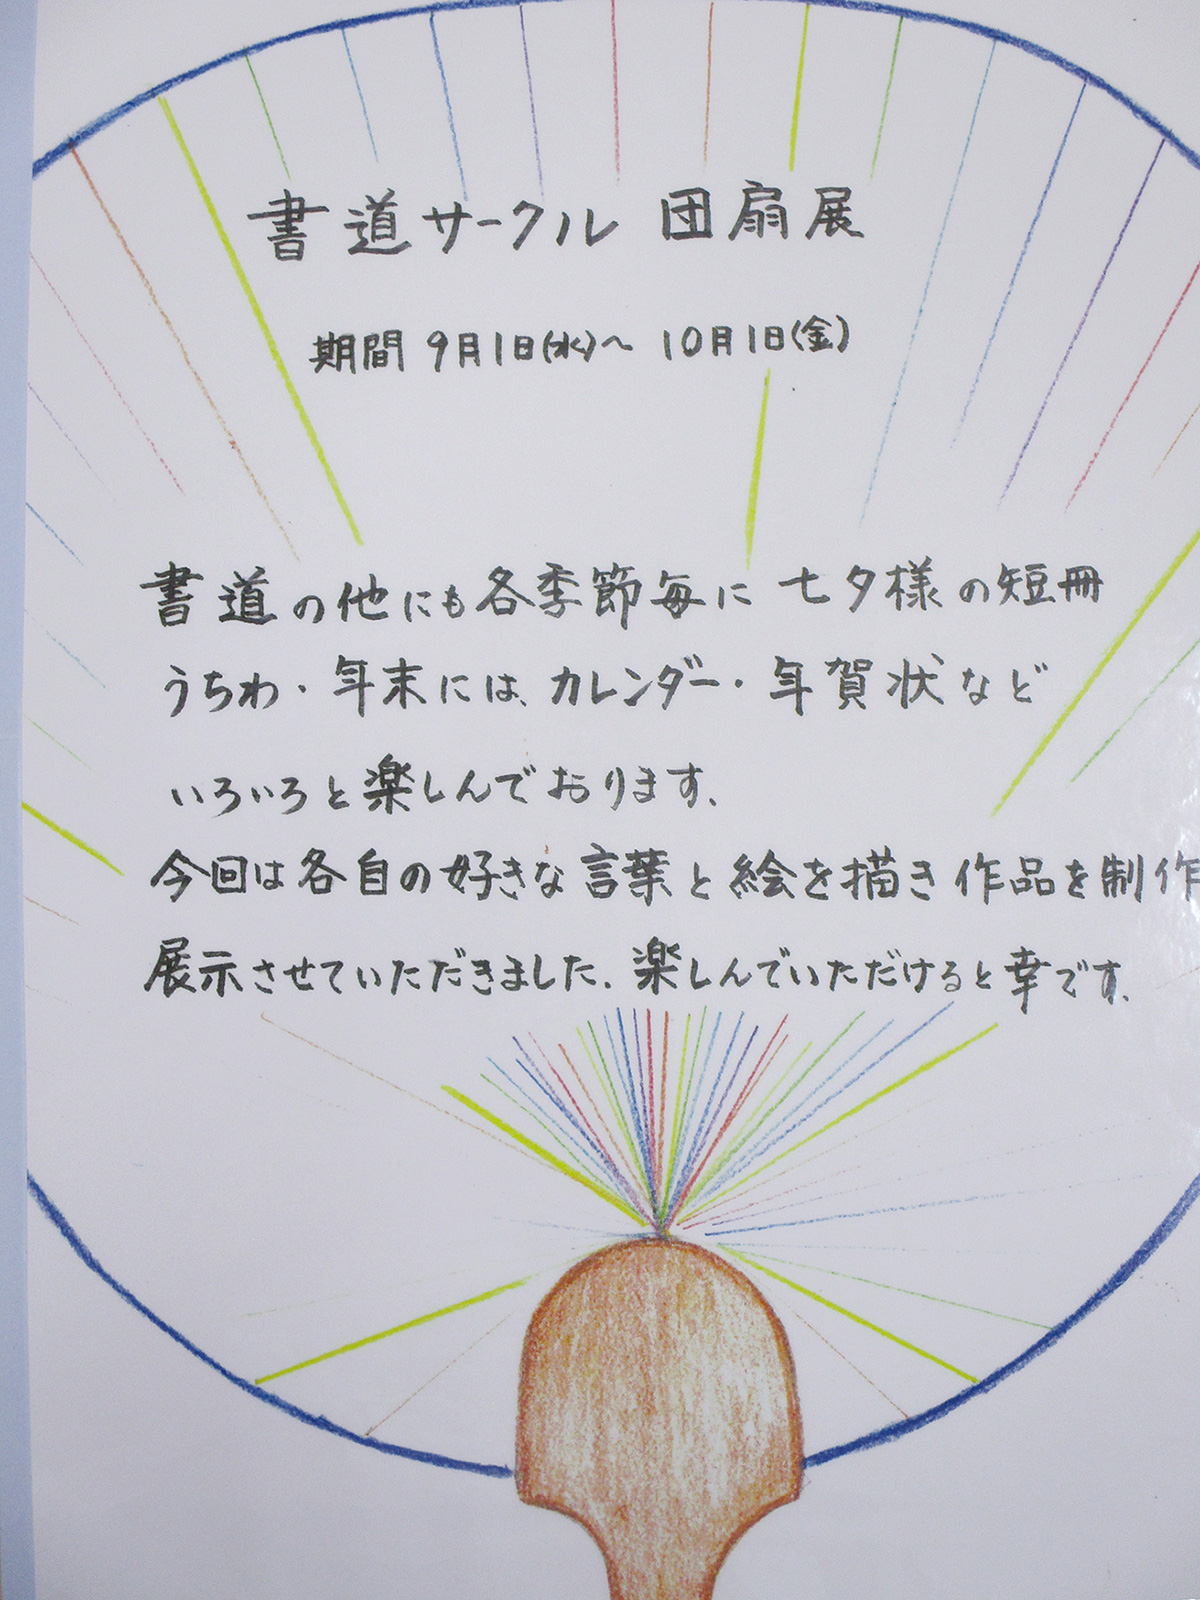 書道サークル 団扇展
期間 9月1日(水)~ 10月1日(金)
書道の他にも各季節毎に 七夕様の短冊
うちわ・年末には、カレンダー・年賀状など
いろいろと楽しんでおります、
今回は各自の好きな言葉と絵を描き作品を制作
展示させていただきました.楽しんでいただけると幸です、